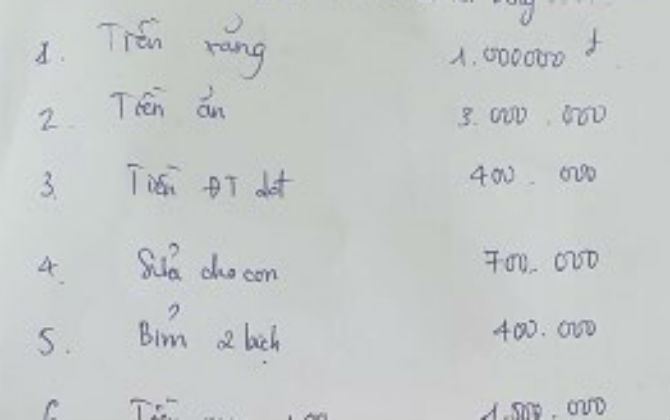 1. Tiền xăng 1.000000 đ
2. Tiền ăn 3.000.000
3. Tiền ĐT dđ 400.000
4. Sữa cho con 700.000
5. Bỉm 2 bịch 400.000
6. Tiền 1.500.000